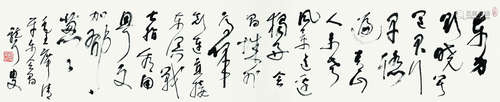 东方
欲晓莫
道君行
早踏
遍青山
人未老
风景这边
独好会
昌城外
高峰
颠连直接
东溟战
士指看南
粤更
加郁郁
葱葱
毛主席清
平乐会昌